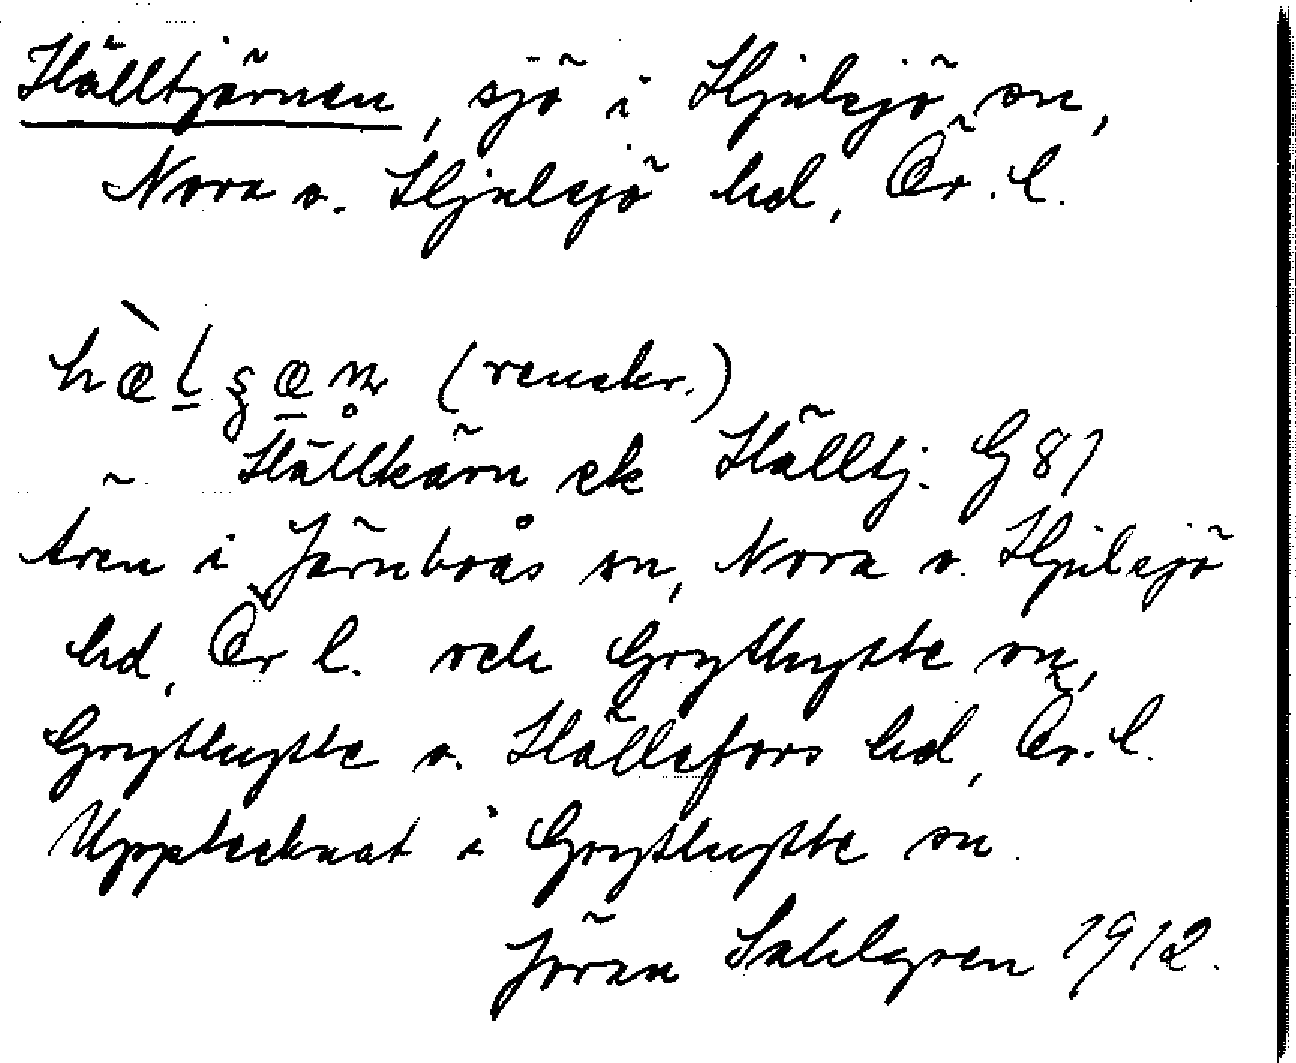 Hälltjärnen, sjö i Hjulsjö sn,
Nora o. Hjulsjö hd, Ör. l.
hæ̀lʂæn̥ (renskr.)
Hällkärn ek Hälltj. G 81
Även i Järnboås sn, Nora o. Hjulsjö
hd, Ör l. och Grythytte sn,
Grythytte o. Hällefors hd, Ör. l.
Upptecknat i Grythytte sn.
Jöran Sahlgren 1912.